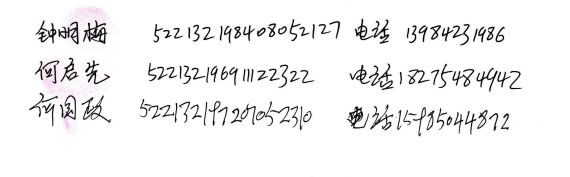 钟明梅 522132198408052127 电话 13984231986
何启先 522132196911122322 电话 18275484942
许国政 522132197207052310 电话 15985044872